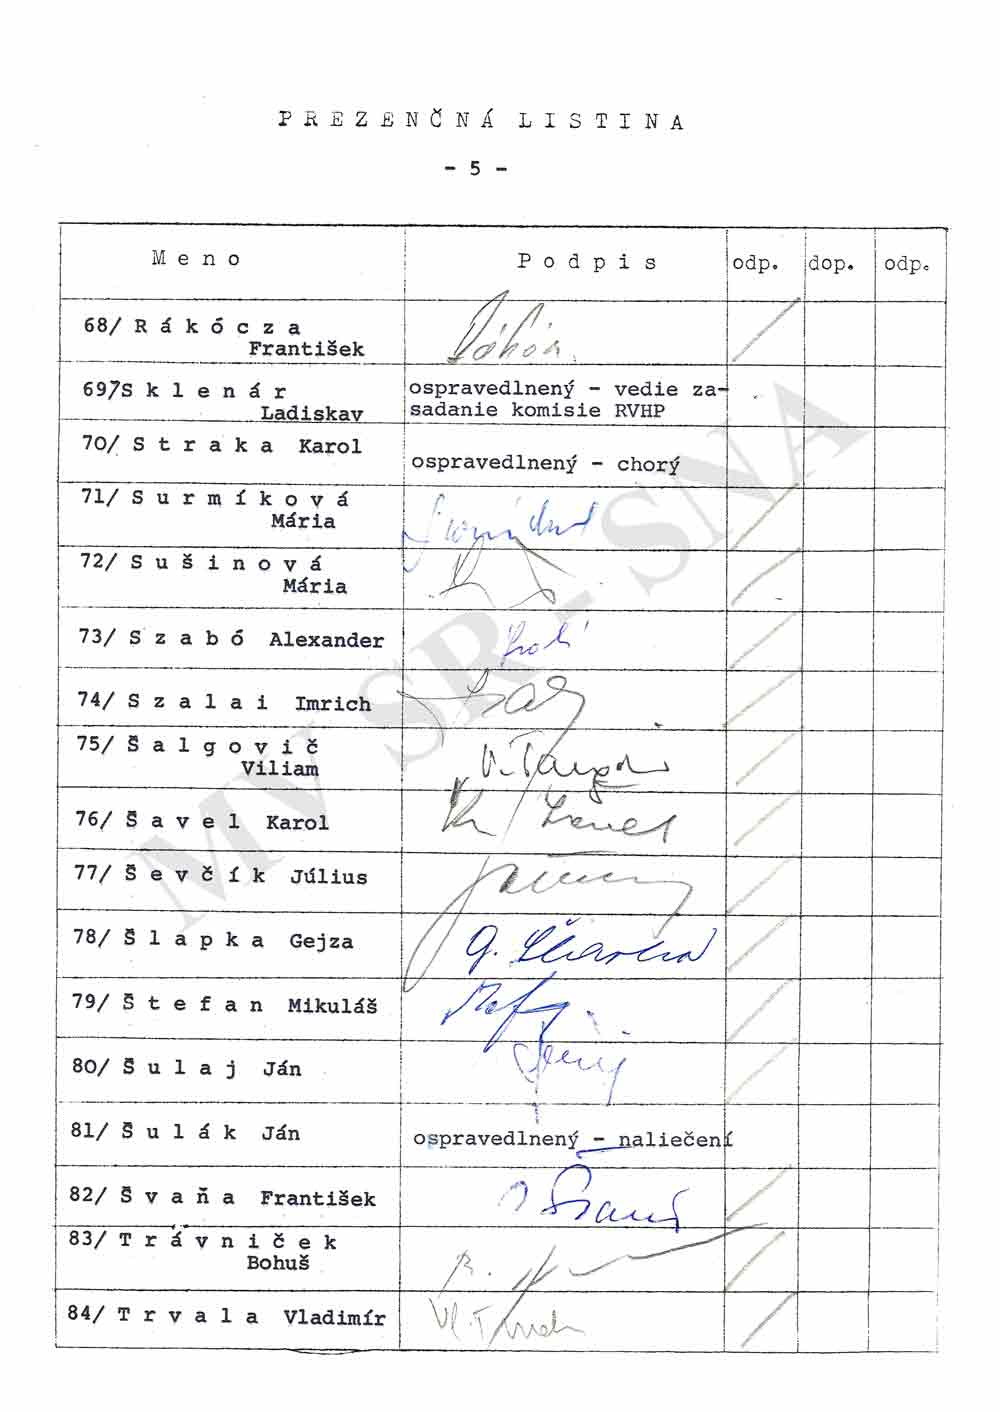 PREZENČNÁ LISTINA
- 5 -
Meno Podpis odp. dop. odp.
68/ Rákócza
František
69/ Sklenár ospravedlnený - vedie za-
Ladiskav sadanie komisie RVHP
70/ Straka Karol
ospravedlnený - chorý
71/ Surmíková
Mária
72/ Sušinová
Mária
73/ Szabó Alexander
74/ Szalai Imrich
75/ Šalgovič
Viliam
76/ Šavel Karol
77/ Ševčík Július
78/ Šlapka Gejza
79/ Štefan Mikuláš
80/ Šulaj Ján
81/ Šulák Ján ospravedlnený - naliečení
82/ Švaňa František
83/ Trávniček
Bohuš
84/ Trvala Vladimír
MV SR - SNA